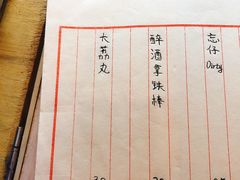 忘仔 Dirty
醉酒拿鉄棒
大荔丸